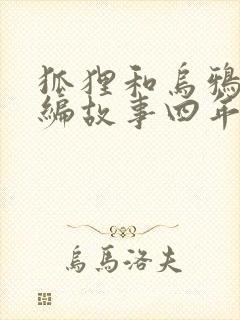 狐狸和烏鴉
編故事四年
烏馬洛夫